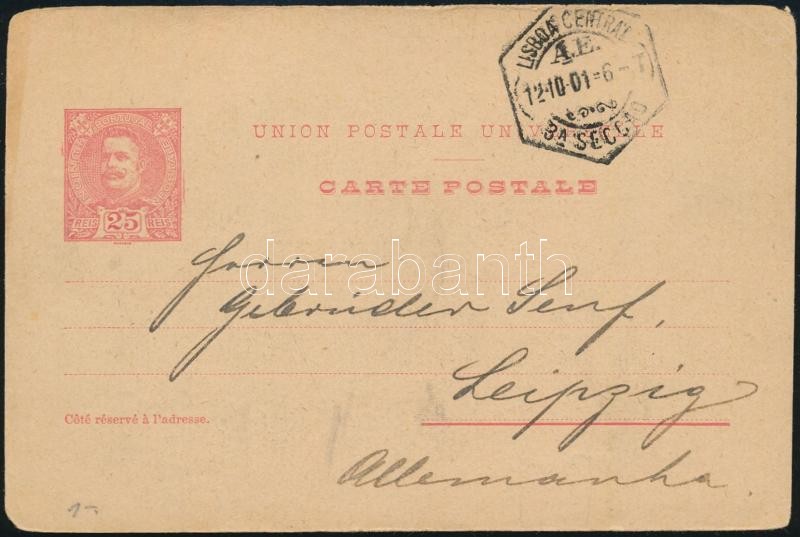 LISBOA CENTRAL
A.E.
12-10-01=6-T
3A SECCÃO
CORREIOS PORTUGAL
UNION POSTALE UNIVERSELLE
CARTE POSTALE
REIS 25 REIS
Herren
darabanth
Gebrüder Senf,
Leipzig
Côté réservé à l'adresse.
Allemanha.